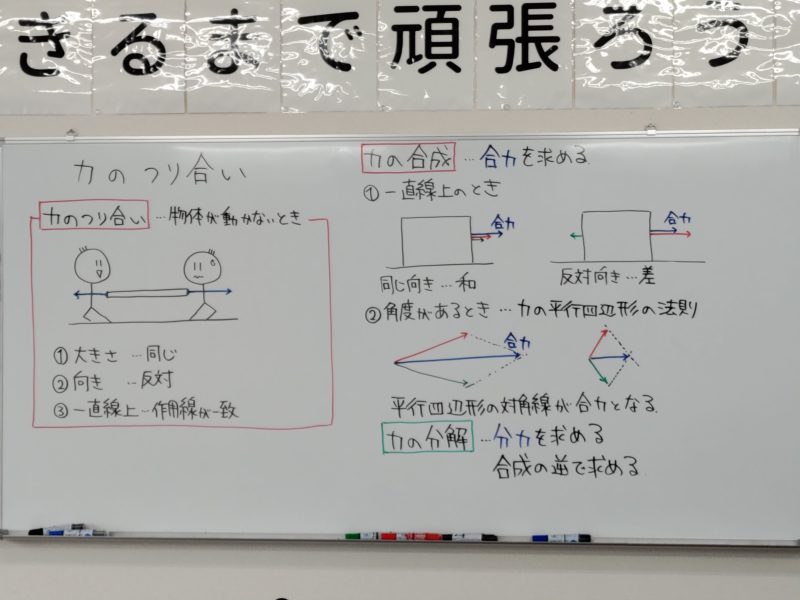 きるまで頑張ろう
力のつり合い
力のつり合い…物体が動かないとき
①大きさ…同じ
②向き…反対
③一直線上…作用線が一致
力の合成…合力を求める
①一直線上のとき
合力
同じ向き…和
合力
反対向き…差
②角度があるとき…力の平行四辺形の法則
合力
平行四辺形の対角線が合力となる.
力の分解…分力を求める
合成の逆で求める.